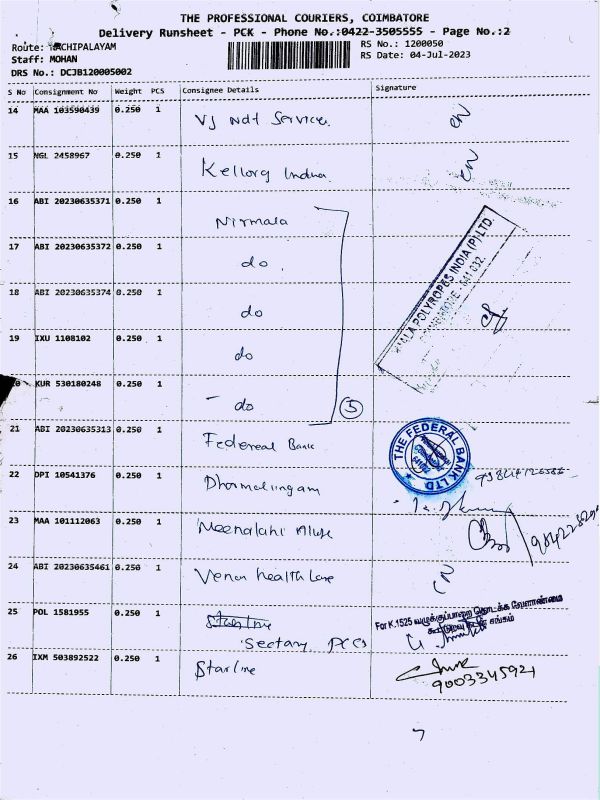 THE PROFESSIONAL COURIERS, COIMBATORE
Delivery Runsheet - PCK - Phone No.:0422-3505555 - Page No.:2
Route: ACHIPALAYAM
Staff: MOHAN
DRS No.: DCJB120005002
RS No.: 1200050
RS Date: 04-Jul-2023
S No Consignment No Weight PCS Consignee Details Signature
14 MAA 103590439 0.250 1 VJ Ndt Services
15 NGL 2458967 0.250 1 Kellorg India
16 ABI 20230635371 0.250 1 Nirmala
17 ABI 20230635372 0.250 1 do
18 ABI 20230635374 0.250 1 do
19 IXU 1108102 0.250 1 do
20 KUR 530180248 0.250 1 do
5
POLYROPES INDIA (P) LTD.
COIMBATORE - 641 032.
21 ABI 20230635313 0.250 1 Federeal Bank
THE FEDERAL BANK LTD.
22 DPI 10541376 0.250 1 Dharmalingam
23 MAA 101112063 0.250 1 Meenalahi
24 ABI 20230635461 0.250 1 Venon health
25 POL 1581955 0.250 1 Starline
Sectary PCS
For K.1525 வழுக்குப்பாறை தொடக்க வேளாண்மை
கூட்டுறவு கடன் சங்கம்
26 IXM 503892522 0.250 1 Starline
9003345921